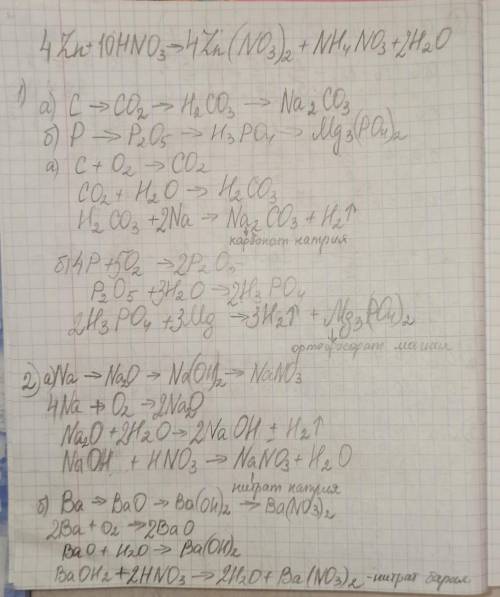 4Zn+10HNO3→4Zn(NO3)2+NH4NO3+2H2O
1) а) C → CO2 → H2CO3 → Na2CO3
б) P → P2O5 → H3PO4 → Mg3(PO4)2
а) C + O2 → CO2
CO2 + H2O → H2CO3
H2CO3 +2Na → Na2CO3 + H2↑
карбонат натрия
б) 4P +5O2 → 2P2O5
P2O5 +3H2O →2H3PO4
2H3PO4 +3Mg →3H2↑ + Mg3(PO4)2
ортофосфат магния
2) а) Na → Na2O → Na(OH)2 → NaNO3
4Na + O2 →2Na2O
Na2O +2H2O→ 2NaOH + H2↑
NaOH + HNO3 → NaNO3 + H2O
нитрат натрия
б) Ba → BaO → Ba(OH)2 → Ba(NO3)2
2Ba + O2 →2BaO
BaO + H2O → Ba(OH)2
BaOH2 +2HNO3 →2H2O+ Ba(NO3)2 -нитрат бария